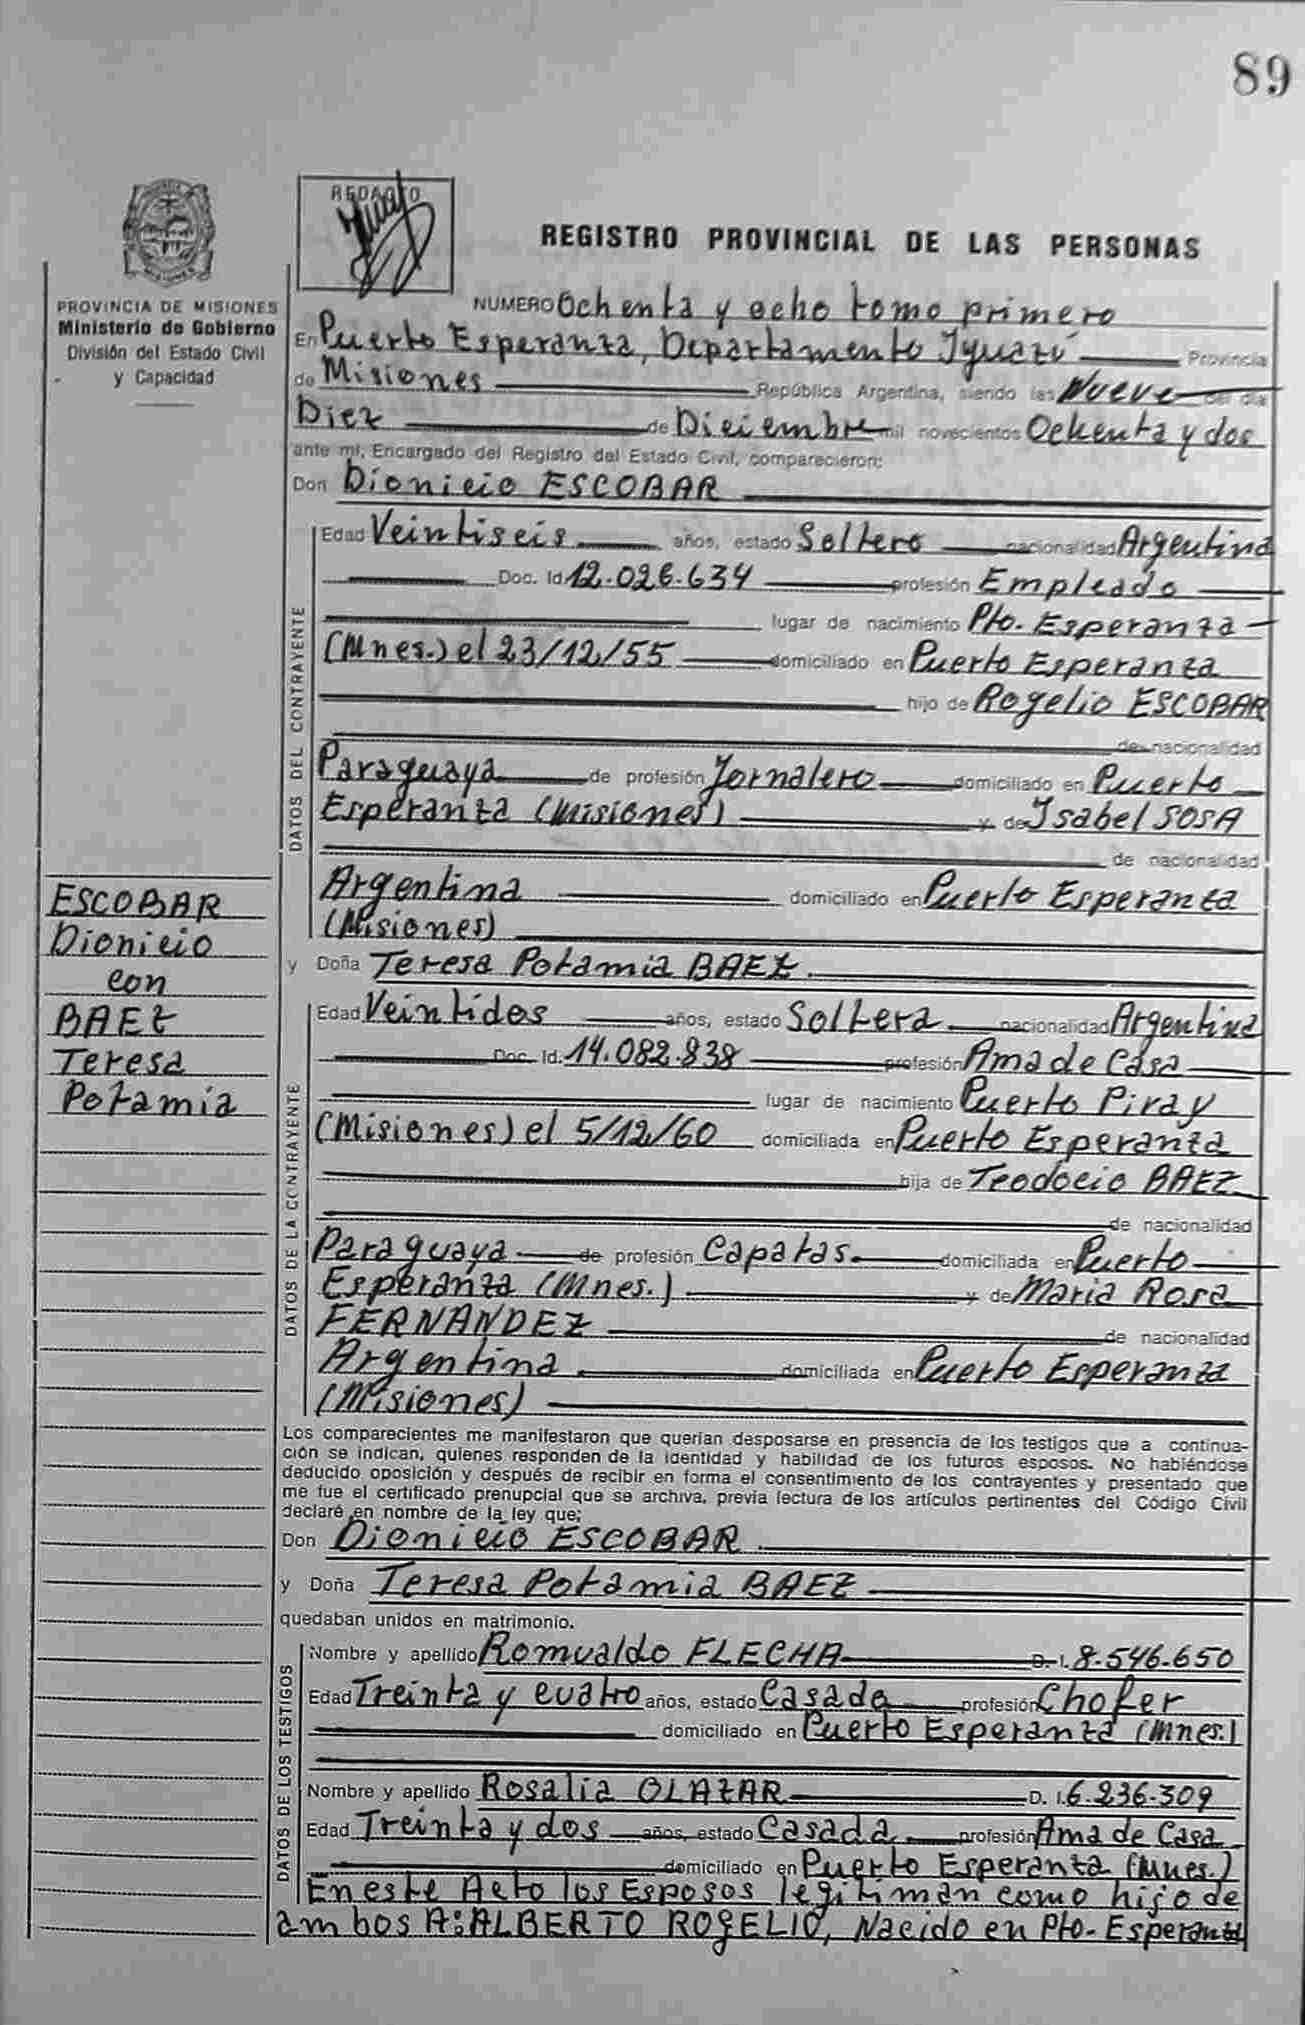 89
REDACTO
REGISTRO PROVINCIAL DE LAS PERSONAS
PROVINCIA DE MISIONES
Ministerio de Gobierno
División del Estado Civil
y Capacidad
NUMERO Ochenta y ocho tomo primero
En Puerto Esperanza, Departamento Yguazú Provincia
de Misiones República Argentina, siendo las Nueve del día
Diez de Diciembre mil novecientos Ochenta y dos
ante mí, Encargado del Registro del Estado Civil, comparecieron:
Don Dionicio ESCOBAR
DATOS DEL CONTRAYENTE
Edad Veintiseis años, estado Soltero nacionalidad Argentina
Doc. Id 12.026.634 profesión Empleado
lugar de nacimiento Pto. Esperanza
(Mnes.) el 23/12/55 domiciliado en Puerto Esperanza
hijo de Rogelio ESCOBAR
de nacionalidad
Paraguaya de profesión Jornalero domiciliado en Puerto
Esperanza (Misiones) y de Ysabel SOSA
de nacionalidad
Argentina domiciliado en Puerto Esperanza
(Misiones)
ESCOBAR
Dionicio
con
BAEZ
Teresa
Potamia
y Doña Teresa Potamia BAEZ.
DATOS DE LA CONTRAYENTE
Edad Veintidos años, estado Soltera nacionalidad Argentina
Doc. Id. 14.082.838 profesión Ama de Casa
lugar de nacimiento Puerto Piray
(Misiones) el 5/12/60 domiciliada en Puerto Esperanza
hija de Teodocio BAEZ
de nacionalidad
Paraguaya de profesión Capatas. domiciliada en Puerto
Esperanza (Mnes.) y de Maria Rosa
FERNANDEZ de nacionalidad
Argentina domiciliada en Puerto Esperanza
(Misiones)
Los comparecientes me manifestaron que querían desposarse en presencia de los testigos que a continua-
ción se indican, quienes responden de la identidad y habilidad de los futuros esposos. No habiéndose
deducido oposición y después de recibir en forma el consentimiento de los contrayentes y presentado que
me fue el certificado prenupcial que se archiva, previa lectura de los artículos pertinentes del Código Civil
declaré en nombre de la ley que;
Don Dionicio ESCOBAR
y Doña Teresa Potamia BAEZ
quedaban unidos en matrimonio.
DATOS DE LOS TESTIGOS
Nombre y apellido Romualdo FLECHA D. I. 8.546.650
Edad Treinta y cuatro años, estado Casado profesión Chofer
domiciliado en Puerto Esperanza (Mnes.)
Nombre y apellido Rosalia OLAZAR D. I. 6.236.309
Edad Treinta y dos años, estado Casada profesión Ama de Casa
domiciliado en Puerto Esperanza (Mnes.)
En este Acto los Esposos legitiman como hijo de
ambos A: ALBERTO ROGELIO, Nacido en Pto. Esperanza